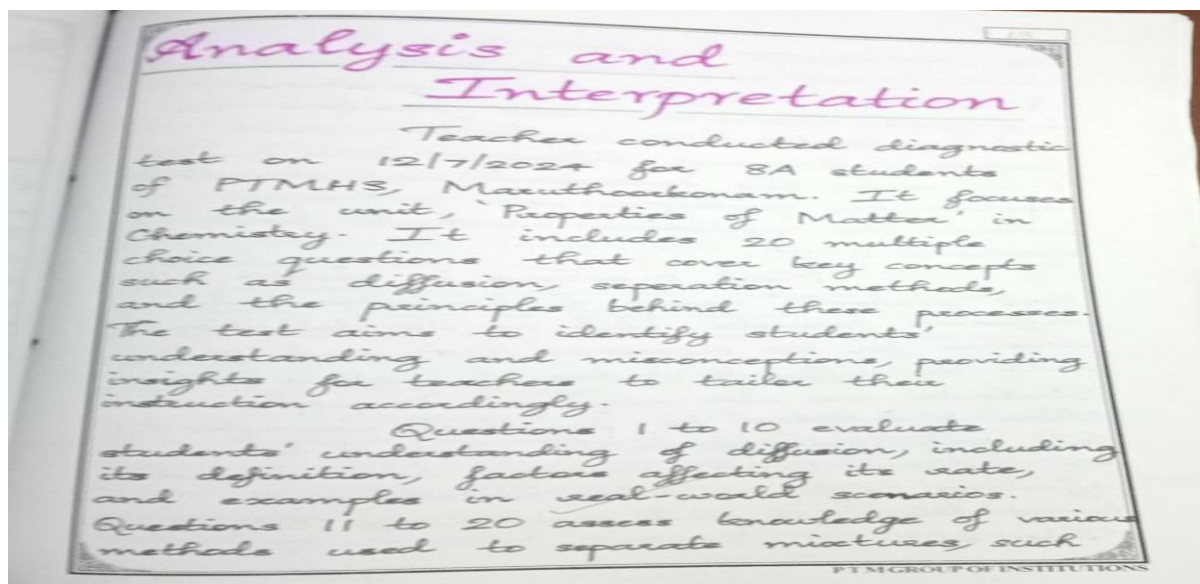 Analysis and
Interpretation
Teacher conducted diagnostic
test on 12/7/2024 for 8A students
of PTMHS, Maruthoorkonam. It focuses
on the unit, 'Properties of Matter' in
Chemistry. It includes 20 multiple
choice questions that cover key concepts
such as diffusion, seperation methods,
and the principles behind these processes.
The test aims to identify students'
understanding and misconceptions, providing
insights for teachers to tailor their
instruction accordingly.
Questions 1 to 10 evaluate
students' understanding of diffusion, including
its definition, factors affecting its rate,
and examples in real-world scenarios.
Questions 11 to 20 assess knowledge of various
methods used to separate mixtures, such
P T M GROUP OF INSTITUTIONS